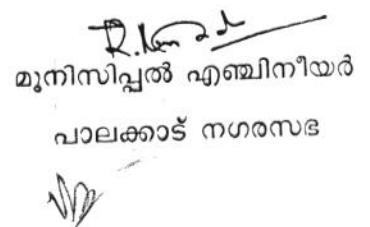 മുനിസിപ്പൽ എഞ്ചിനീയർ
പാലക്കാട് നഗരസഭ